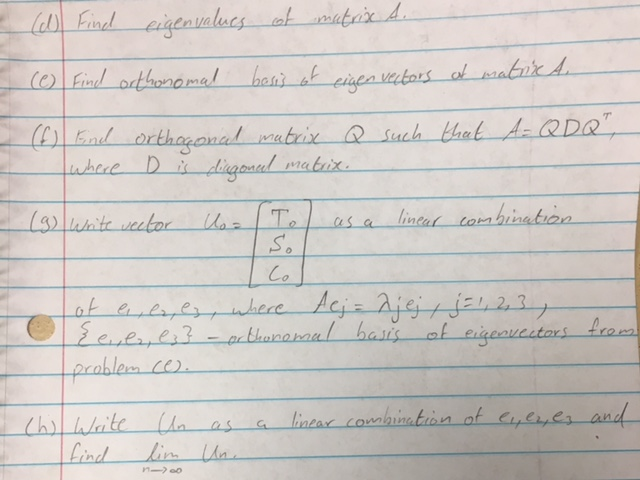 (d) Find eigenvalues of matrix A.
(e) Find orthonomal basis of eigenvectors of matrix A.
(f) Find orthogonal matrix Q such that A = QDQᵀ,
where D is diagonal matrix.
(g) Write vector U₀ = [T₀ S₀ C₀] as a linear combination
of e₁, e₂, e₃, where Aeⱼ = λⱼeⱼ, j=1,2,3,
{e₁, e₂, e₃} – orthonomal basis of eigenvectors from
problem (e).
(h) Write Uₙ as a linear combination of e₁, e₂, e₃ and
find lim n→∞ Uₙ.